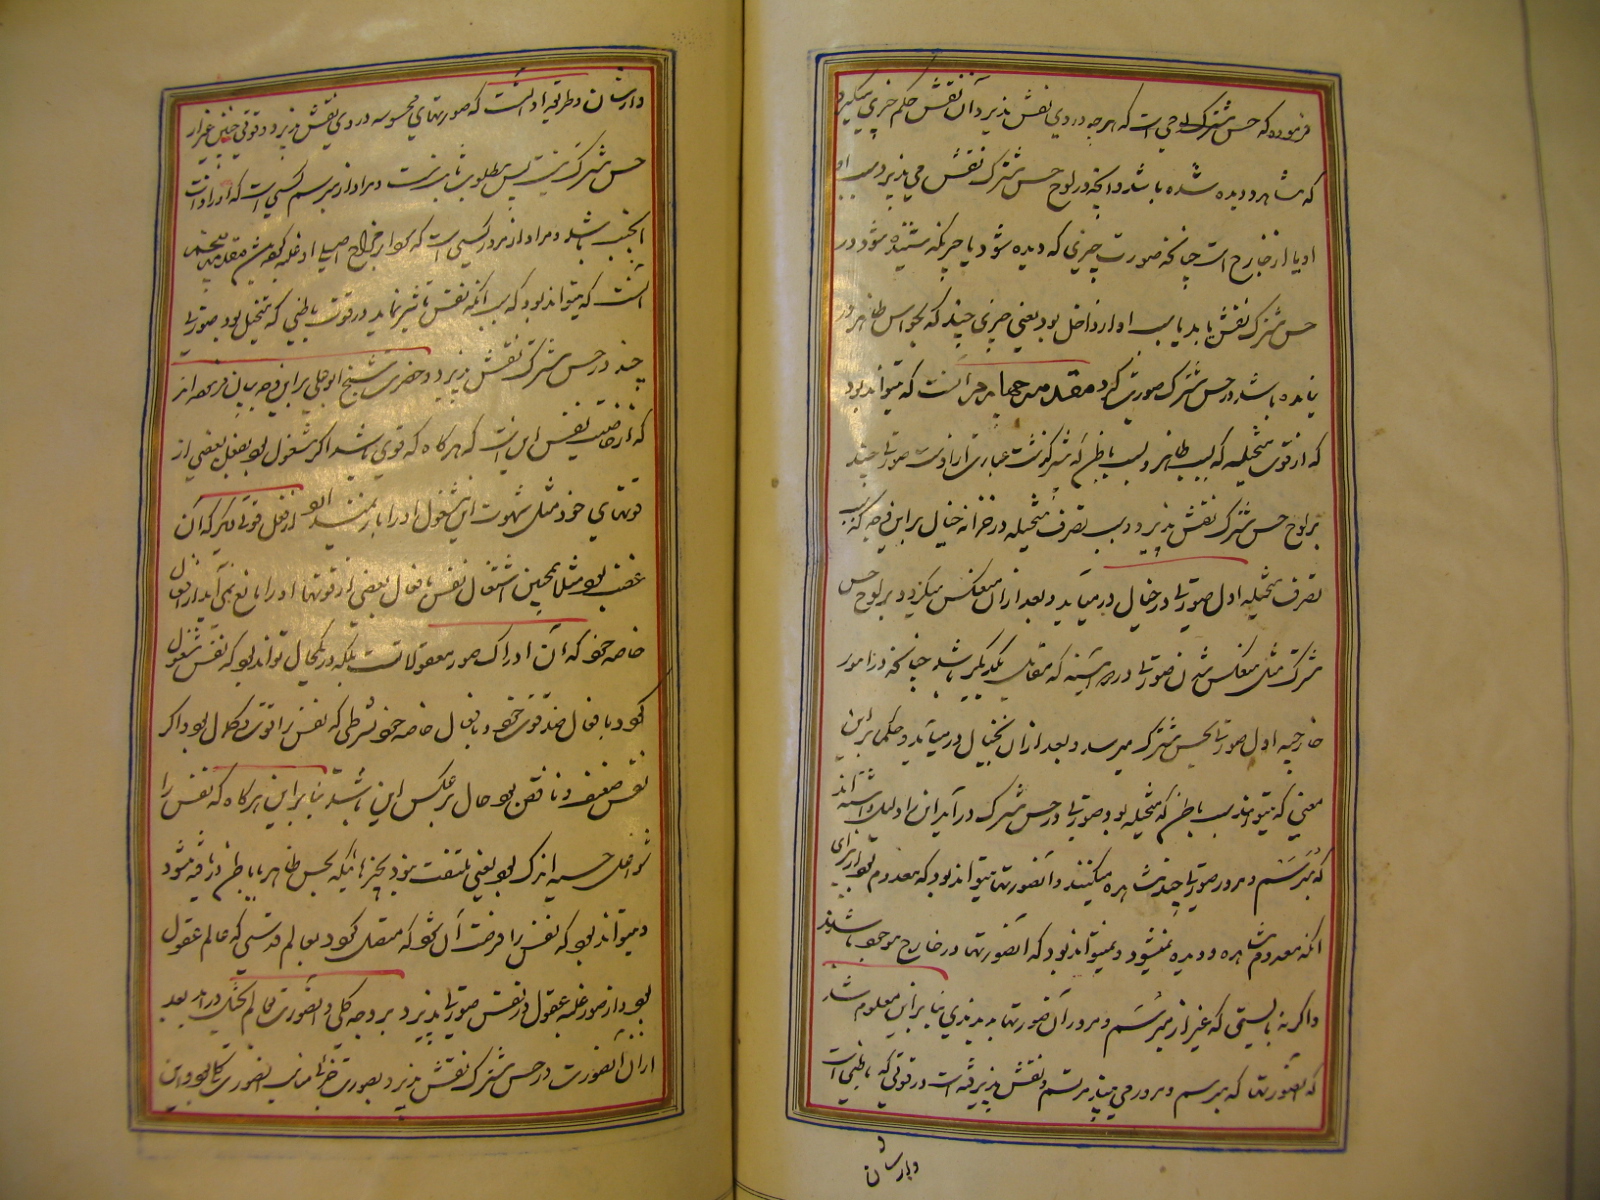 فرموده که حس مشترک لوحی است که هرچه در وی نقش پذیرد آن نقش حکم چیزی میگیرد
که مشاهد و دیده شده باشد و آنچه در لوح حس مشترک نقش می پذیرد سبب او
او یا از خارج است چنانچه صورت چیزی که دیده شود یا چیزیکه شنیده شود در
حس مشترک نقش یابد یا سبب او از داخل بود یعنی چیزی چند که بحواس ظاهر در
نیامده باشد در حس مشترک صورت گیرد مقدمه چهارم آنست که میتواند بود
که از قوت متخیله که سبب ظاهر و سبب باطن که گذشت عبارت از اوست صورتی چند
بر لوح حس مشترک نقش پذیرد و سبب تصرف متخیله در خزانه خیال بر این وجه که
تصرف متخیله اول صورتی در خیال درمیآید و بعد از آن منعکس میگردد بر لوح حس
مشترک مثل منعکس شدن صورتی در دو آئینه که مقابل یکدیگر باشد چنانچه در امور
خارجیه اول صورت بحس مشترک میرسد و بعد از آن بخیال درمیآید و حکما بر این
معنی که میتواند سبب باطن که متخیله بود صورتی در حس مشترک درآید این را دلیل دانسته اند
که مبرسم و مرور صورتی چند مشاهده میکنند و آنصورتها میتواند بود که معدوم بود از برای
آنکه معدوم مشاهده و دیده نمیشود و نمیتواند بود که آنصورتها در خارج موجود باشند
و اگر نه بایستی که غیر از مبرسم و مرور آن صورتها بدیدندی بنا بر این معلوم شد
که آنصورتها که مبرسم و مرور می بیند مرتسم و نقش پذیرفته است در قوتی که باطنی است
و از شان
و از شان و طریقه او آنست که صورتهای محسوسه در وی نقش پذیرد و قوتی چنین غیر از
حس مشترک نیست پس مطلوب ثابت است و مراد از مبرسم کسی است که او را ذات
الجنب باشد و مراد از مرور کسی است که
آنست که میتواند بود که سبب آنکه نفس تأثیر نماید در قوت باطنی که متخیل بود صورتی
چند در حس مشترک نقش پذیرد و حضرت شیخ ابو علی بر این وجه بیان فرموده اند
که از خاصیت نفس این است که هرگاه که قوی باشد اگر مشغول بود بفعل بعضی از
قوتهای خود مثل شهوت این شغول او را باز نمیدارد از فعل قوت دیگر که آن
غضب بود مثلا همچنین اشتغال نفس بافعال بعضی از قوتها او را مانع نمی آید از افعال
خاصه خود که آن ادراک صور معقولاتست بلکه در یکحال تواند بود که نفس مشغول
گردد بافعال ضد قوت خود و بافعال خاصه خود بشرطی که نفس را قوت و کمال بود و اگر
نفس ضعیف و ناقص بود حال بر عکس این باشد بنا بر این هرگاه که نفس را
شواغل حسیه اندک بود یعنی ملتفت نبود بچیزهائیکه بحس ظاهر یا باطن دریافته شود
و میتواند بود که نفس را فرصت آن شود که متصل گردد بعالم قدسی که عالم عقول
بود و از صور علمیه عقول در نفس صورتی پذیرد بر وجه کلی و آنصورت بعالم تخیل درآید بعد
از آن آنصورت در حس مشترک نقش پذیرد بصورت جزئی مناسب آنصورت کلی بود و این